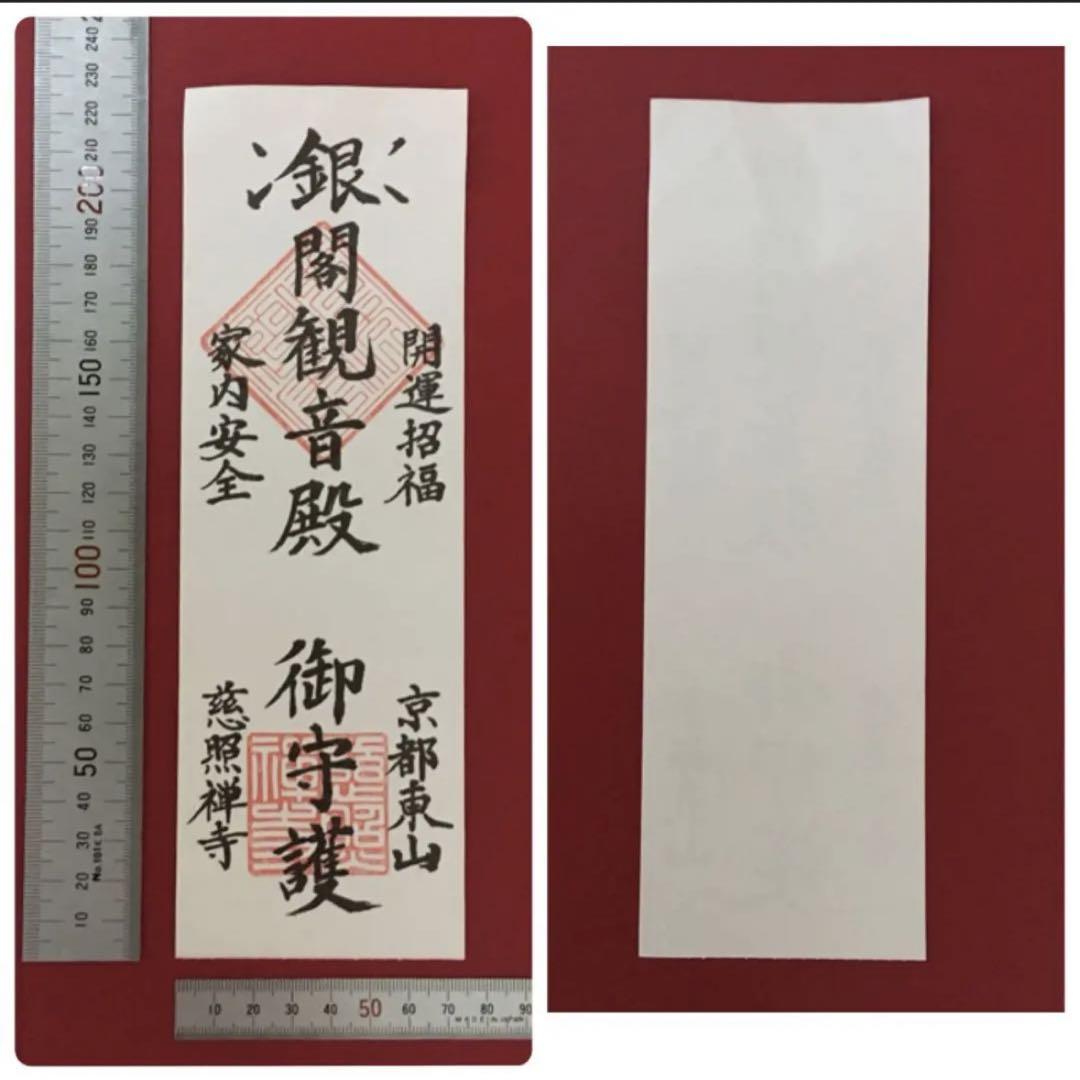 銀閣観音殿 御守護
開運招福
家内安全
京都東山
慈照禅寺
240
230
220
210
200
190
180
170
160
150
140
130
120
110
100
90
80
70
60
50
40
30
20
10
10 20 30 40 50 60 70 80 90